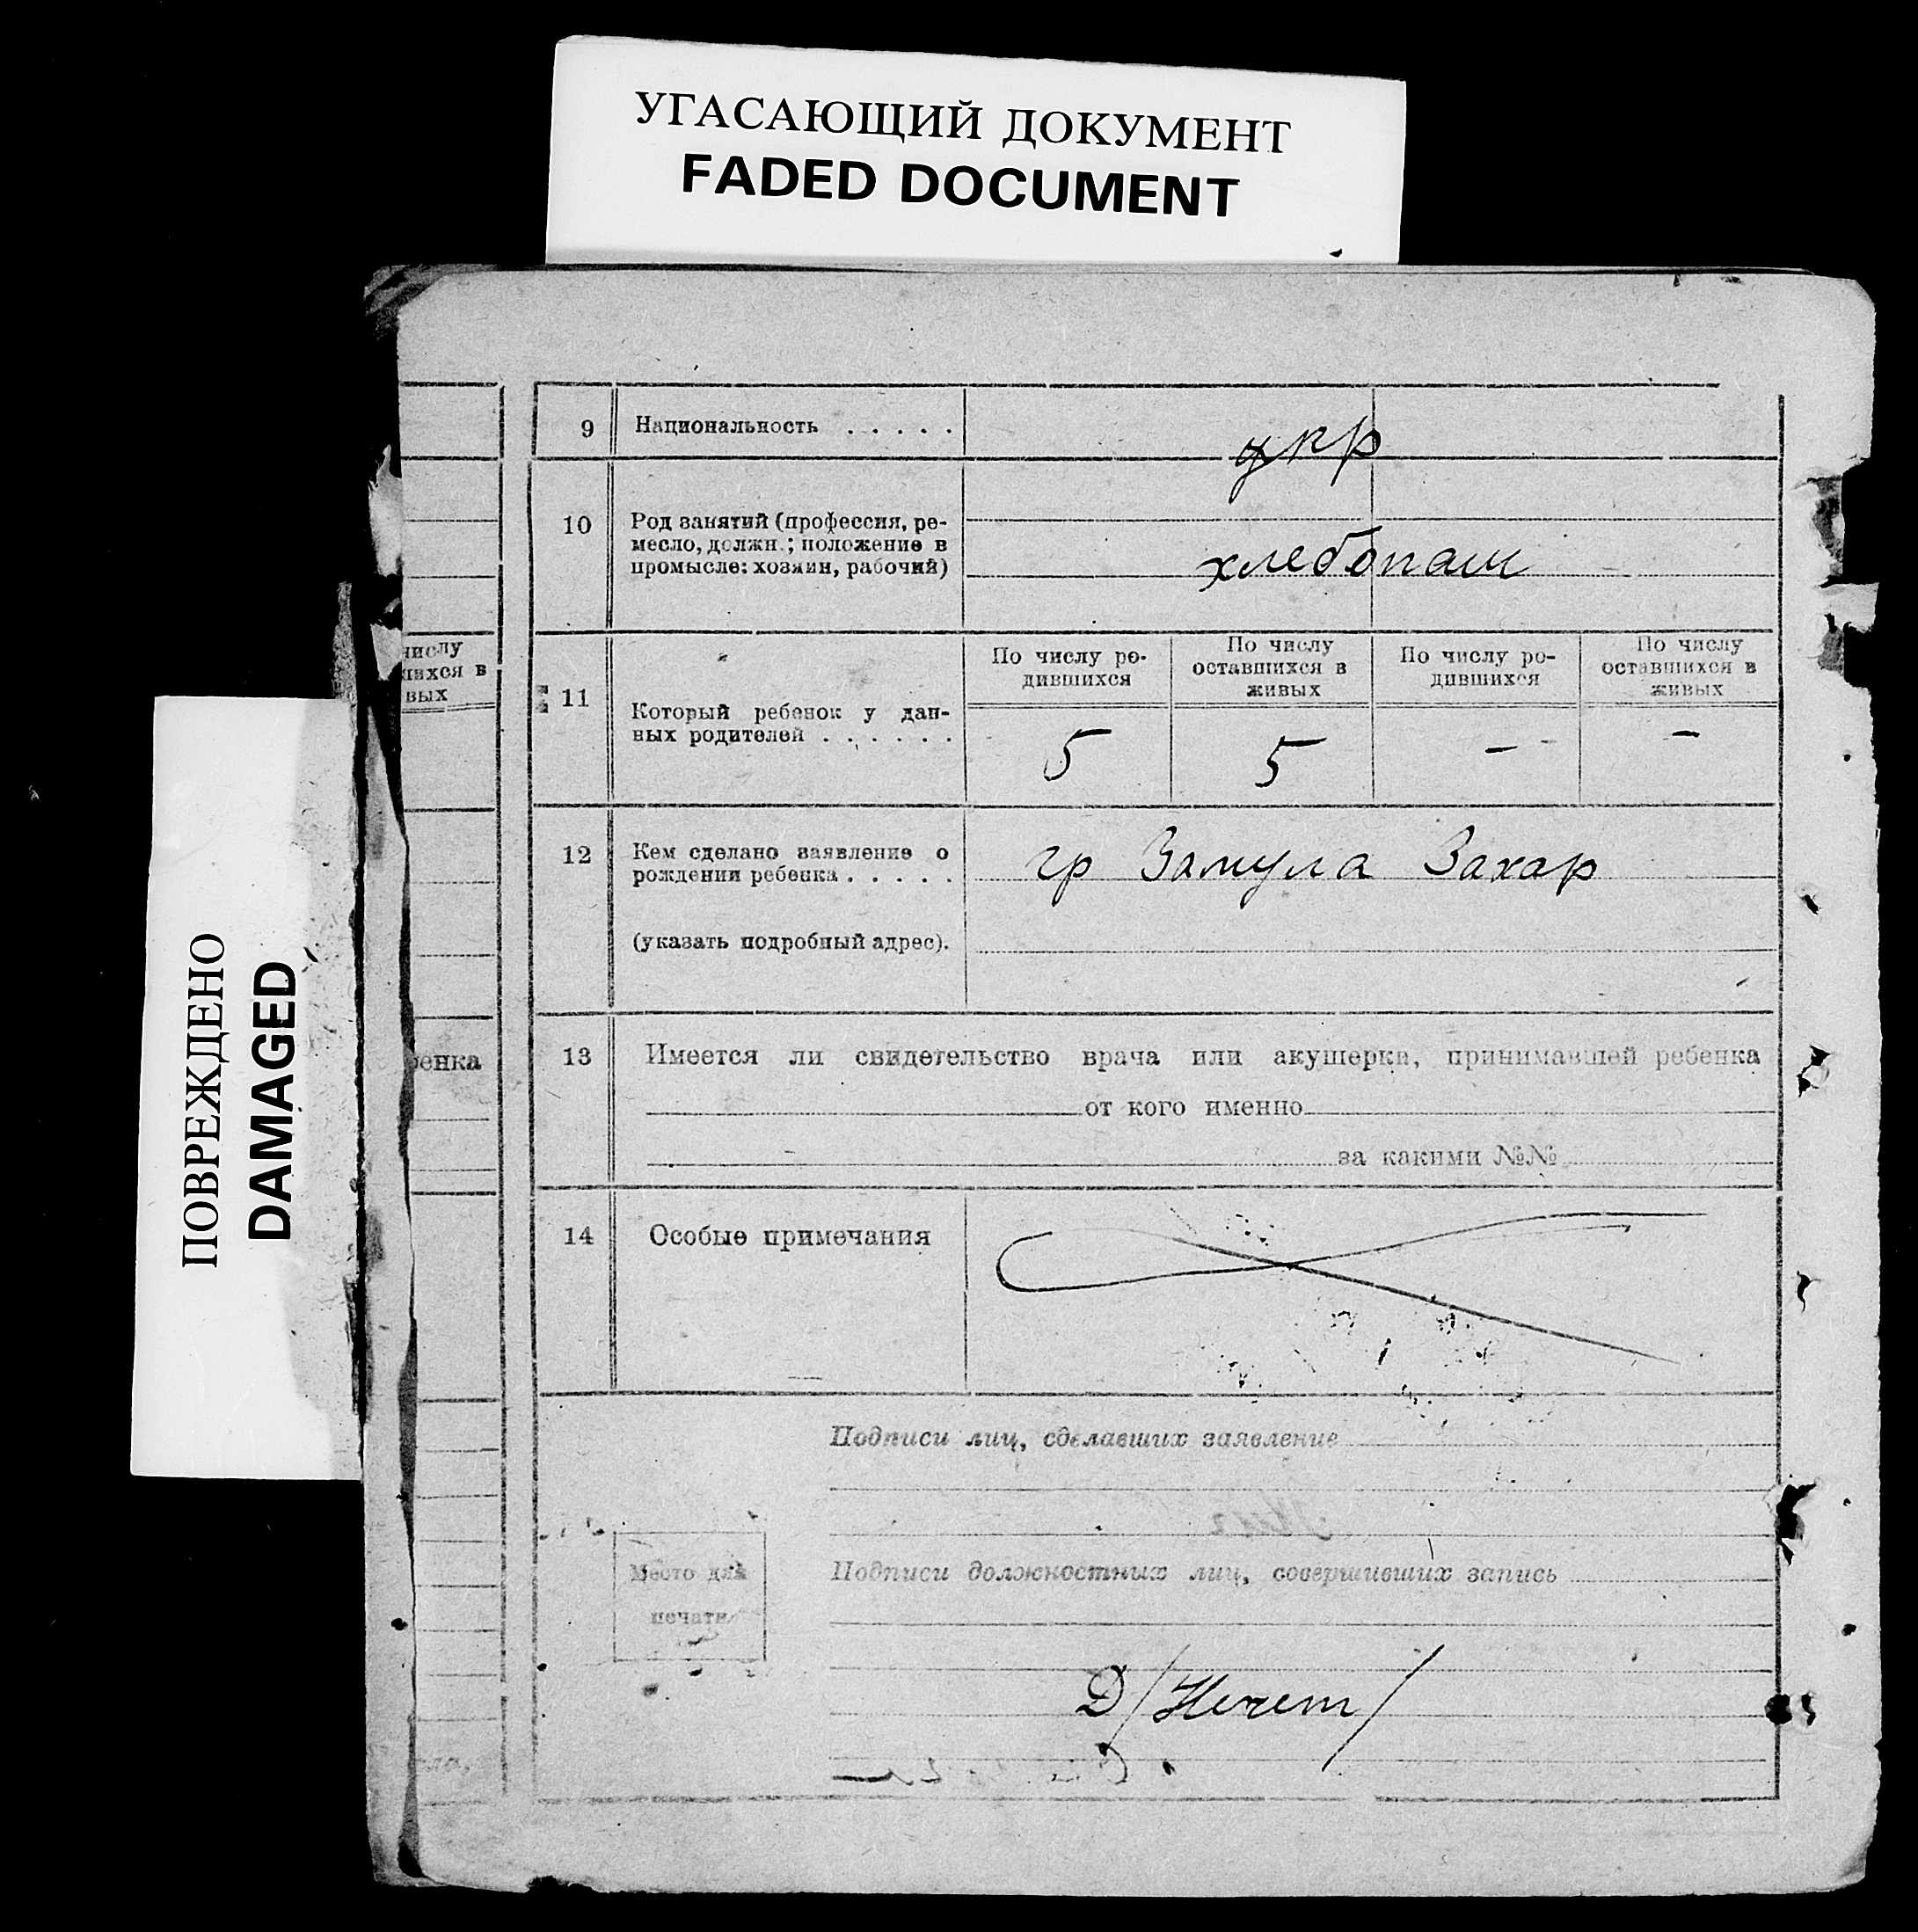 УГАСАЮЩИЙ ДОКУМЕНТ
FADED DOCUMENT
ПОВРЕЖДЕНО
DAMAGED
числу
шихся в
вых
енка
9 Национальность . . . . .
укр
10 Род занятий (профессия, ре-
месло, должн.; положение в
промысле: хозяин, рабочий)
хлебопаш
11 Который ребенок у дан-
ных родителей . . . . . .
По числу ро-
дившихся
По числу
оставшихся в
живых
По числу ро-
дившихся
По числу
оставшихся в
живых
5 5 – –
12 Кем сделано заявление о
рождении ребенка . . . . .
гр Замула Захар
(указать подробный адрес).
13 Имеется ли свидетельство врача или акушерки, принимавшей ребенка
от кого именно
за какими №№
14 Особые примечания
Подписи лиц, сделавших заявление
Место для
печати
Подписи должностных лиц, совершивших запись
Д/Нечет/